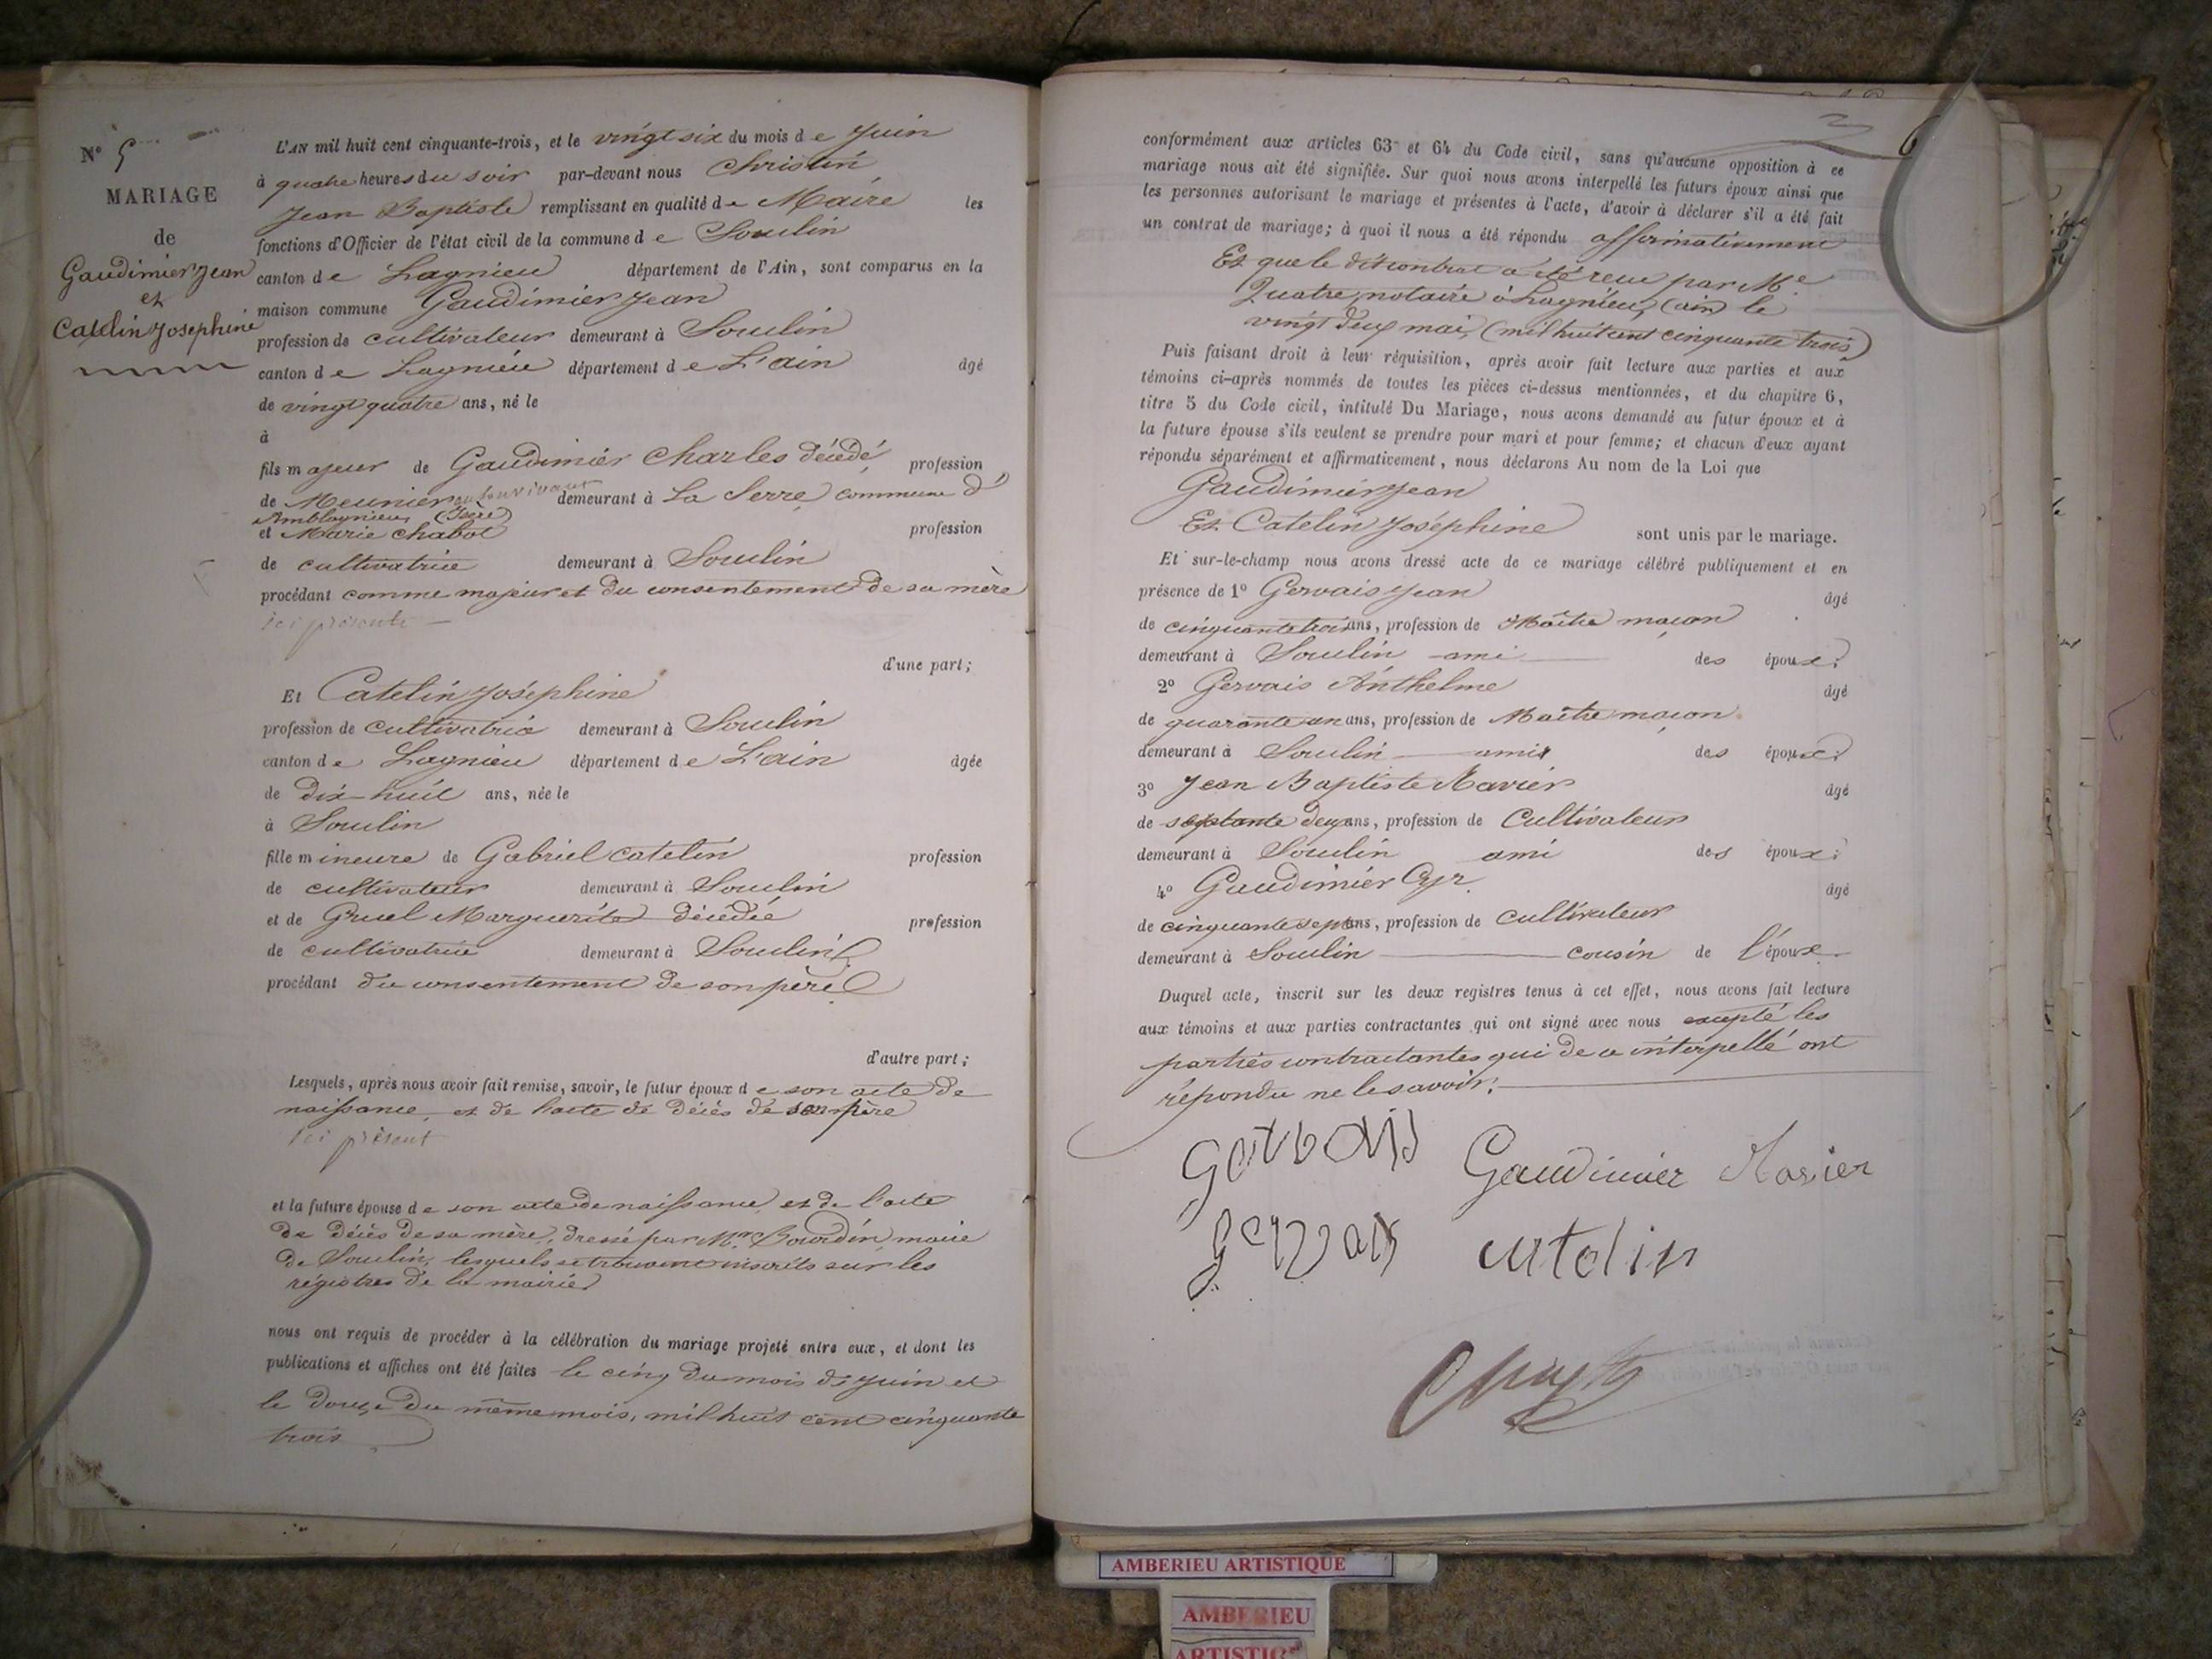 N° 5
MARIAGE
de
Gaudimier Jean
et
Catelin Josephine
L'AN mil huit cent cinquante-trois, et le vingt six du mois de Juin
à quatre heures du soir par-devant nous Christin
Jean Baptiste remplissant en qualité de Maire les
fonctions d'Officier de l'état civil de la commune de Soulin
canton de Lagnieu département de l'Ain, sont comparus en la
maison commune Gaudimier Jean
profession de cultivateur demeurant à Soulin
canton de Lagnieu département de L'ain âgé
de vingt quatre ans, né le
à
fils majeur de Gaudimier Charles décédé profession
de Meunier en son vivant demeurant à La Serre commune d'
Amblagnieu (Isère)
et Marie Chabot profession
de cultivatrice demeurant à Soulin
procédant comme majeur et du consentement de sa mère
ici présente
d'une part;
Et Catelin Joséphine
profession de cultivatrice demeurant à Soulin
canton de Lagnieu département de L'ain âgée
de dix-huit ans, née le
à Soulin
fille mineure de Gabriel Catelin profession
de cultivateur demeurant à Soulin
et de Gruel Marguerite décédée profession
de cultivatrice demeurant à Soulin
procédant du consentement de son père
d'autre part;
Lesquels, après nous avoir fait remise, savoir, le futur époux de son acte de
naissance, et de l'acte de décès de son père
ici présent
et la future épouse de son acte de naissance et de l'acte
de décès de sa mère, dressé par Mr. Bourdin maire
de Soulin, lesquels se trouvent inscrits sur les
régistres de la mairie
nous ont requis de procéder à la célébration du mariage projeté entre eux, et dont les
publications et affiches ont été faites le cinq du mois de Juin et
le douze du même mois, mil huit cent cinquante
trois
conformément aux articles 63 et 64 du Code civil, sans qu'aucune opposition à ce
mariage nous ait été signifiée. Sur quoi nous avons interpellé les futurs époux ainsi que
les personnes autorisant le mariage et présentes à l'acte, d'avoir à déclarer s'il a été fait
un contrat de mariage; à quoi il nous a été répondu affirmativement
Et que le dit contrat a été reçu par Me
Quatre, notaire à Lagnieu, (ain) le
vingt deux mai, (mil huit cent cinquante trois)
Puis faisant droit à leur réquisition, après avoir fait lecture aux parties et aux
témoins ci-après nommés de toutes les pièces ci-dessus mentionnées, et du chapitre 6,
titre 5 du Code civil, intitulé Du Mariage, nous avons demandé au futur époux et à
la future épouse s'ils veulent se prendre pour mari et pour femme; et chacun d'eux ayant
répondu séparément et affirmativement, nous déclarons Au nom de la Loi que
Gaudimier Jean
Et Catelin Joséphine sont unis par le mariage.
Et sur-le-champ nous avons dressé acte de ce mariage célébré publiquement et en
présence de 1° Gervais Jean âgé
de cinquante trois ans, profession de Maître maçon
demeurant à Soulin ami des époux.
2° Gervais Anthelme âgé
de quarante un ans, profession de Maître maçon
demeurant à Soulin amis des époux.
3° Jean Baptiste Navier âgé
de septante deux ans, profession de Cultivateur
demeurant à Soulin ami des époux.
4° Gaudimier Cyr âgé
de cinquante sept ans, profession de cultivateur
demeurant à Soulin cousin de l'époux
Duquel acte, inscrit sur les deux registres tenus à cet effet, nous avons fait lecture
aux témoins et aux parties contractantes qui ont signé avec nous excepté les
parties contractantes qui de ce interpellé ont
répondu ne le savoir.
Gervais Gaudimier Navier
Gervais Catelin
AMBERIEU ARTISTIQUE
AMBERIEU
ARTISTIQ